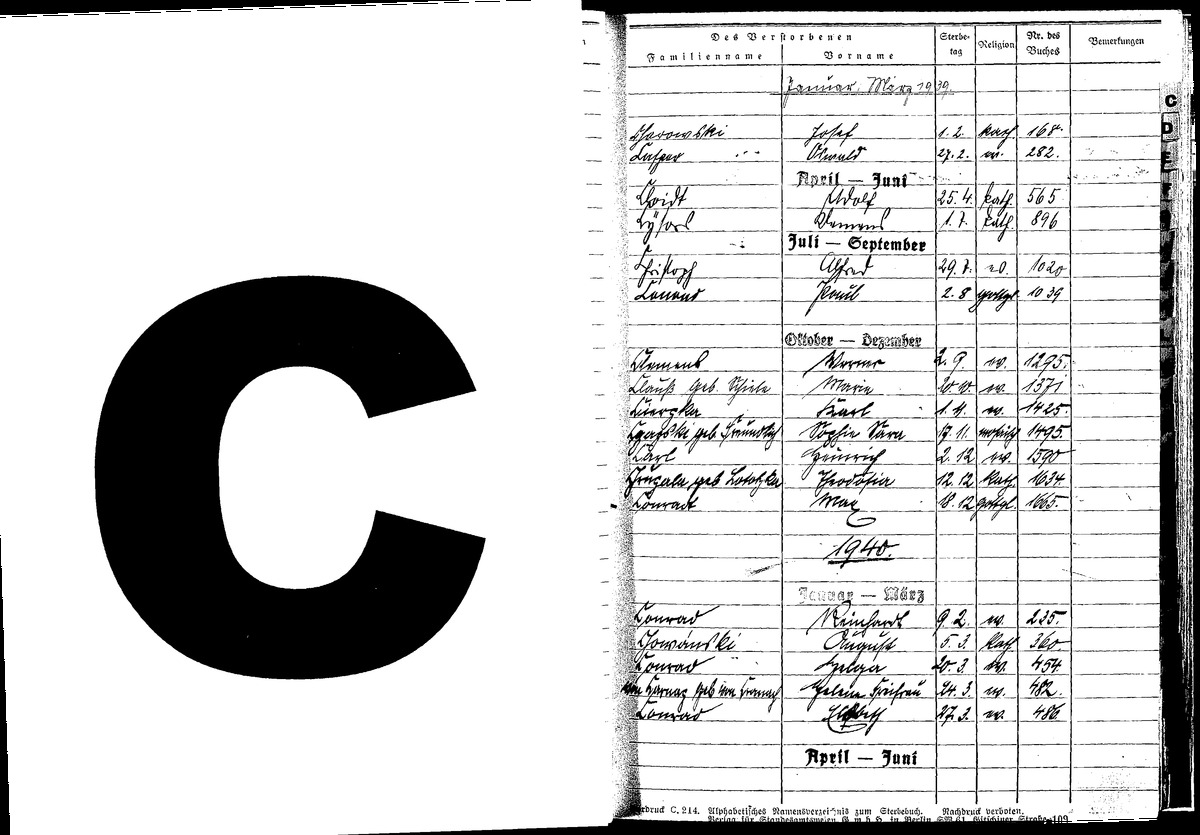 C
Des Verstorbenen Sterbe- Religion Nr. des Bemerkungen
Familienname Vorname tag Buches
Januar, März 1939.
C
Chorowski Josef 1. 2. kath. 168.
D
Casper Oswald 27. 2. ev. 282.
E
April — Juni
Adolf 25. 4. kath. 565
Clemens 1. 7. kath. 896
Juli — September
Christoph Alfred 29. 7. ev. 1020
Paul 2. 8 gottgl. 1039
Oktober — Dezember
Clemens Werner 2. 9. ev. 1295.
Clauß geb. Schiele Marie 20. 10. ev. 1371
Cierpka Karl 1. 11. ev. 1425.
geb. Freundlich Sophie Sara 17. 11. mosaisch 1495.
Carl Heinrich 2. 12 ev. 1590
geb. Theodosia 12. 12 kath. 1634
Conradt Max 18. 12 gottgl. 1665.
1940.
Januar — März
Conrad Reinhardt 9. 2. ev. 235.
Chowanski August 5. 3. kath. 360
Conrad Helga 20. 3. ev. 454
von geb. von Cranach Helene Freifrau 24. 3. ev. 482.
Conrad Elsbeth 27. 3. ev. 486.
April — Juni
Vordruck C. 214. Alphabetisches Namensverzeichnis zum Sterbebuch. Nachdruck verboten.
Verlag für Standesamtswesen G. m. b. H. in Berlin SW 61, Gitschiner Straße 109.